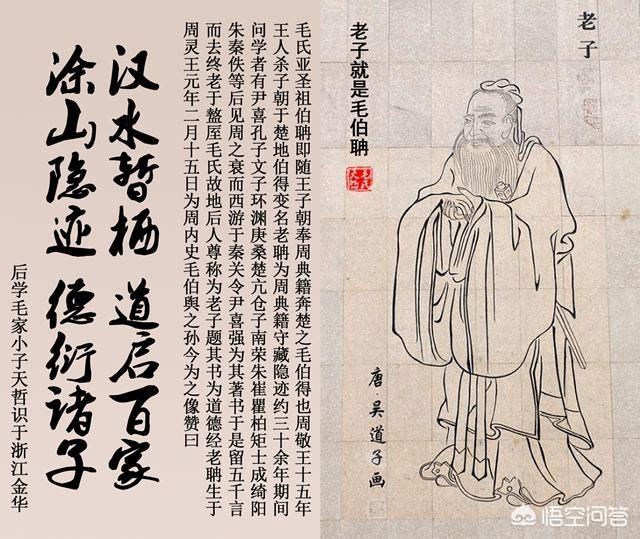 老子
唐吴道子画
老子就是毛伯聃
毛氏亚圣祖伯聃即随王子朝奉周典籍奔楚之毛伯得也周敬王十五年
王人杀子朝于楚地伯得变名老聃为周典籍守藏隐迹约三十余年期间
问学者有尹喜孔子文子环渊庚桑楚亢仓子南荣朱崔瞿柏矩士成绮阳
朱秦佚等后见周之衰而西游于秦关令尹喜强为其著书于是留五千言
而去终老于盩厔毛氏故地后人尊称为老子题其书为道德经老聃生于
周灵王元年二月十五日为周内史毛伯舆之孙今为之像赞曰
汉水暂栖 道启百家
涂山隐迹 德衍诸子
后学毛家小子天哲识于浙江金华
悟空问答